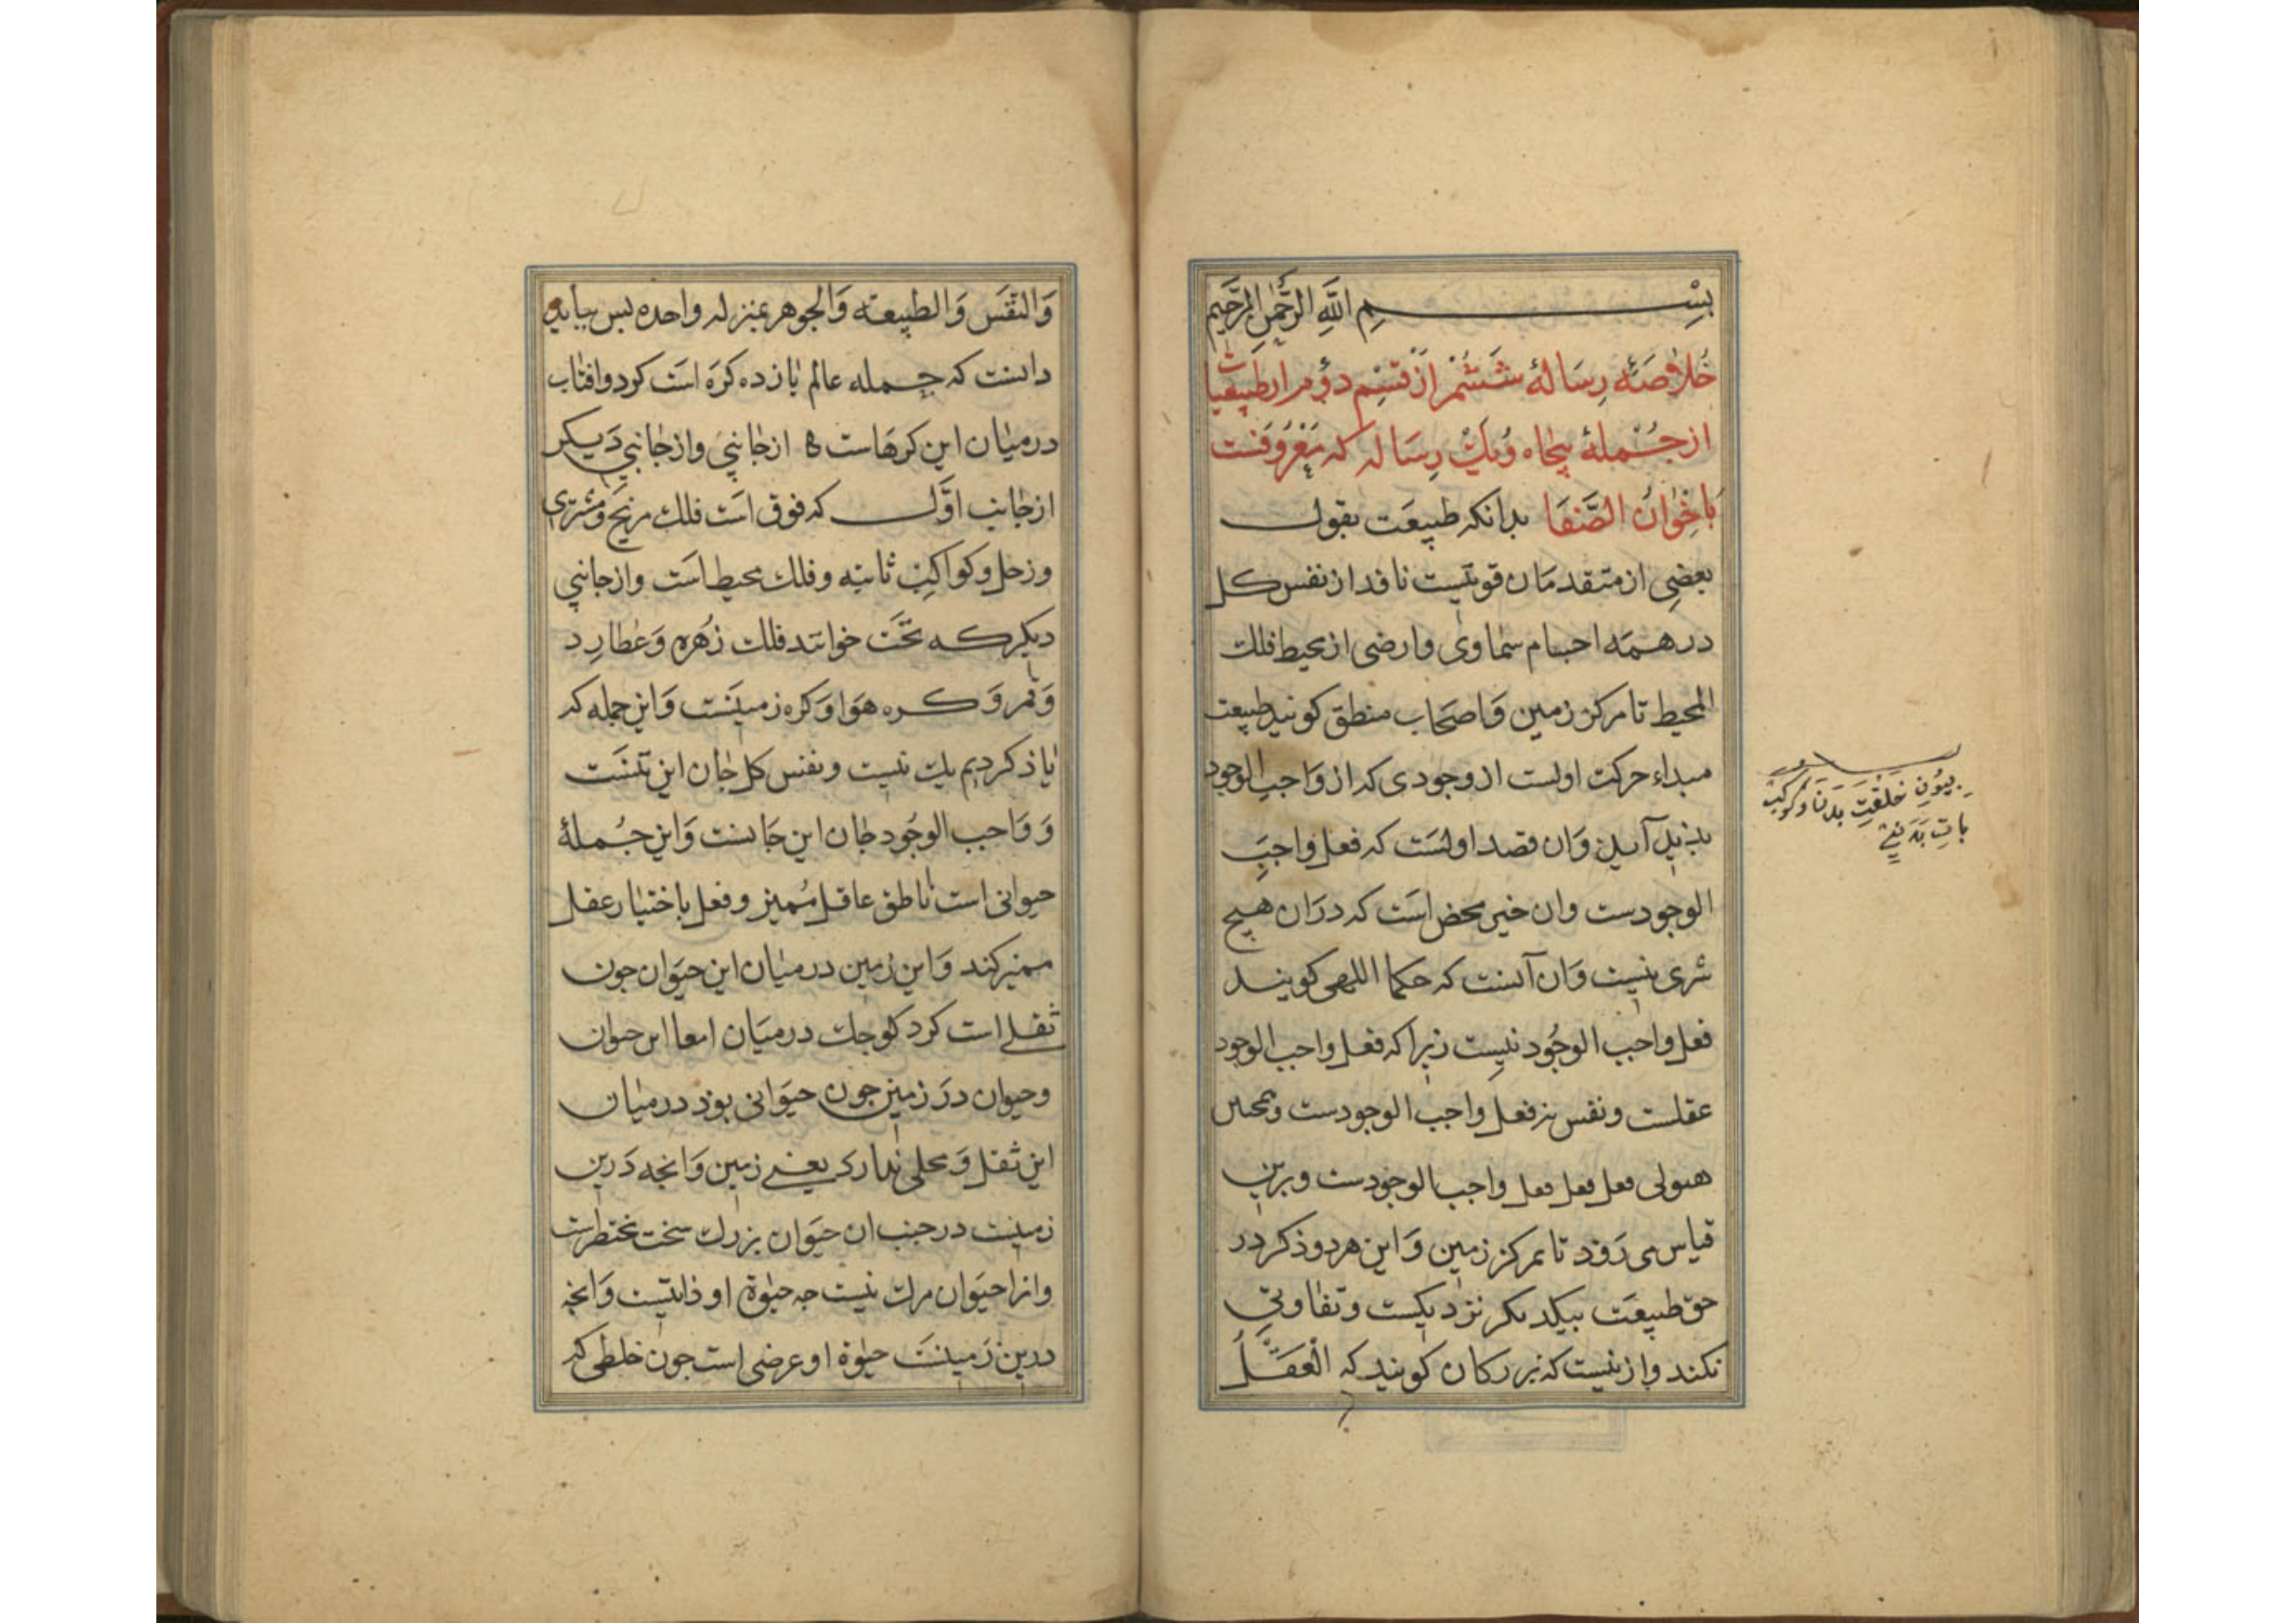 بِسْمِ اللَّهِ الرَّحْمٰنِ الرَّحِيم
خُلاصَهٔ رِسَالهٔ شَشُمْ از قِسْمِ دوُم از طبیعیات
از جُمْلهٔ پنجاه وُیك رِسَاله که مَعْرُوفَست
بَاخْوانُ الصَّفَا بدانکه طبیعَت بقول
بعضِی از متقدمَان قوتیست نافد از نفس کل
در همَه اجسام سماوی وارضی از محیط فلك
المحیط تا مرکز زمین وَاصحَاب منطق کویند طبیعت
مبداء حرکت اولست از وجودی که از وَاجب الوجود
پدید آمد وَان قصد اولسَت که فعل واجبِ
الوجودست وان خیر محض اسَت که درَان هیچ
شری نیست وَان آنست که حکما اللهی کویند
فعل واجب الوجُود نیست زیرا که فعل واجب الوجود
عقلست ونفس نیز فعل واجب الوجودست وهمچنین
هیولی فعل فعل فعل واجب الوجودست وبرین
قیاس می رَوَد تا بمرکز زمین وَاین هردو ذکر در
حق طبیعَت بیکدیکر نزدیکست وتفاوتی
نکند وازینست که بزرکان کویند که الْعَقْلُ
وَالنَّفَس وَالطبیعته وَالجوهر بمنزله واحده بس بباید
دانست که جمله عالم یازده کرَه اسَت کرد وافتاب
در میان این کرهاست ه از جانبی واز جانبی دَیکر
از جانب اوَّل که فوق اسَت فلك مریخ وَمشتری
وزحل وکواکب ثابته وفلك محیط اسَت واز جانبی
دیکر که تحَت خوانند فلك زُهره وَعُطارِد
وَقمر وَکره هوَا وَکره زمینَست وَاین جمله که
یاذ کردیم یك تنیست ونفس کل جان این تنسَت
وَوَاجب الوجُود جان این جَانست وَاین جُملهٔ
حیوانی است ناطق عاقل مُمیز وفعل باختیار عقل
ممیز کند وَاین زمین در میان این حیَوان جون
ثفلے است کرد کوجك در میَان امعا این حیوان
وحیوان درَ زمین جون حیَوانی بوَد در میان
این ثفل وَمحلی ندارد یعنے زمین وَانجه دَرین
زمینست در جنب ان حیَوان بزرك سخت مختصرست
وانرا حیَوان مرك نیست جه حیٰوة او ذاتیست وَانجه
درین زَمینسَت حیٰوة او عرضی است جون خلطی که
خلقتِ بدن